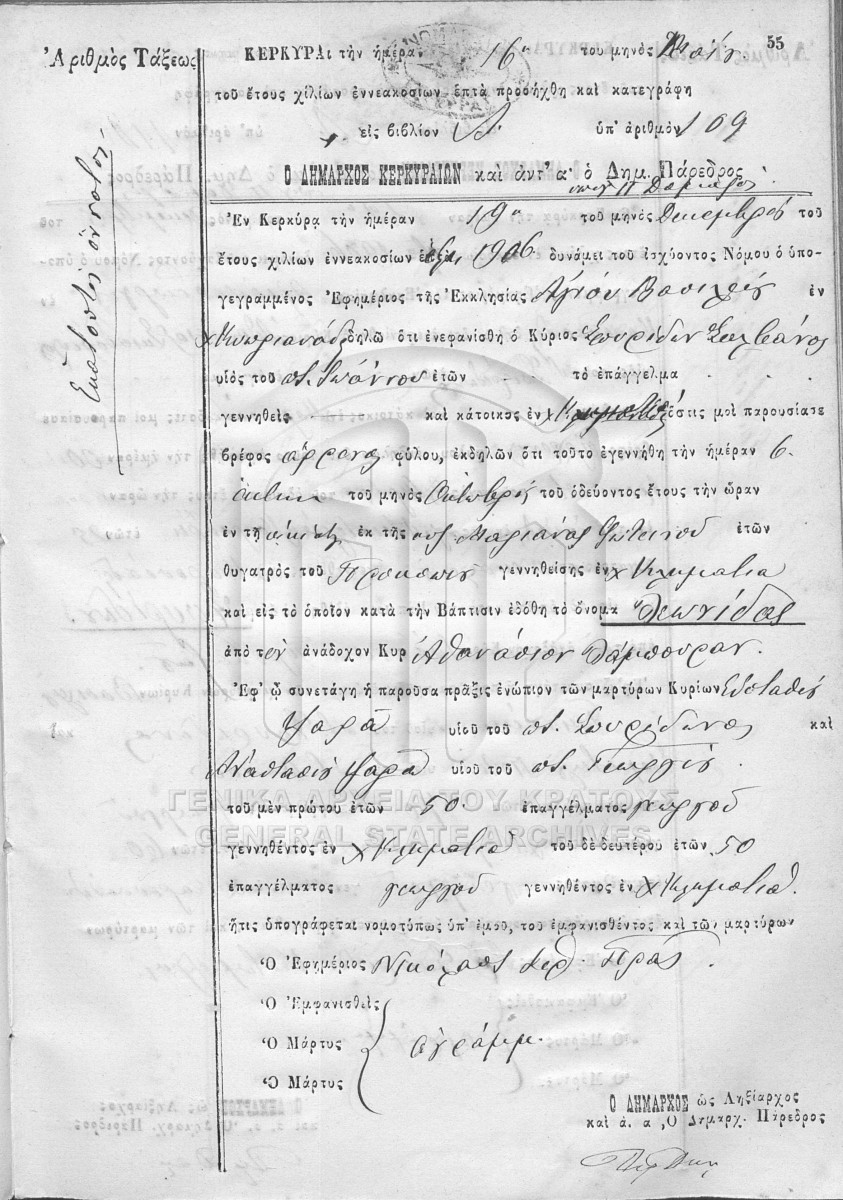 55
Ἀριθμὸς Τάξεως
Ἑκατοστὸς ἔννατος
ΚΕΡΚΥΡΑι τὴν ἡμέραν 16 τοῦ μηνὸς
τοῦ ἔτους χιλίων ἐννεακοσίων ἑπτὰ προσήχθη καὶ κατεγράφη
εἰς βιβλίον Α. ὑπ' ἀριθμὸν 109
Ὁ ΔΗΜΑΡΧΟΣ ΚΕΡΚΥΡΑΙΩΝ καὶ ἀντ' α· ὁ Δημ. Πάρεδρος
Ἐν Κερκύρᾳ τὴν ἡμέραν 19 τοῦ μηνὸς Δεκεμβρίου τοῦ
ἔτους χιλίων ἐννεακοσίων 1906 δυνάμει τοῦ ἰσχύοντος Νόμου ὁ ὑπο-
γεγραμμένος Ἐφημέριος τῆς Ἐκκλησίας Ἁγίου Βασιλείου ἐν
χ Κυπριανάδι δηλῶ ὅτι ἐνεφανίσθη ὁ Κύριος Σπυρίδων Σαλβάνος
υἱὸς τοῦ π. Ἰωάννου ἐτῶν τὸ ἐπάγγελμα
γεννηθεὶς καὶ κάτοικος ἐν χ ὅστις μοὶ παρουσίασε
βρέφος ἄρρενος φύλου, ἐκδηλῶν ὅτι τοῦτο ἐγεννήθη τὴν ἡμέραν 6
ἕκτην τοῦ μηνὸς Ὀκτωβρίου τοῦ ὁδεύοντος ἔτους τὴν ὥραν
ἐν τῇ οἰκίᾳ ἐκ τῆς Μαριάνας Φωτεινοῦ ἐτῶν
θυγατρὸς τοῦ Προκοπίου γεννηθείσης ἐν χ Κληματιὰ
καὶ εἰς τὸ ὁποῖον κατὰ τὴν Βάπτισιν ἐδόθη τὸ ὄνομα Λεωνίδας
ἀπὸ τὸν ἀνάδοχον Κυρ Ἀθανάσιον Λάμπουραν.
Ἐφ' ᾧ συνετάγη ἡ παροῦσα πρᾶξις ἐνώπιον τῶν μαρτύρων Κυρίων Εὐσταθίου
Ψαρᾶ υἱοῦ τοῦ π. Σπυρίδωνος καὶ
Ἀναστασίου Ψαρᾶ υἱοῦ τοῦ π. Γεωργίου.
ΓΕΝΙΚΑ ΑΡΧΕΙΑ ΤΟΥ ΚΡΑΤΟΥΣ
τοῦ μὲν πρώτου ἐτῶν 50 ἐπαγγέλματος γεωργοῦ
GENERAL STATE ARCHIVES
γεννηθέντος ἐν χ Κληματιὰ τοῦ δὲ δευτέρου ἐτῶν 50
ἐπαγγέλματος γεωργοῦ γεννηθέντος ἐν χ Κληματιά.
ἥτις ὑπογράφεται νομοτύπως ὑπ' ἐμοῦ, τοῦ ἐμφανισθέντος καὶ τῶν μαρτύρων
Ὁ Ἐφημέριος Νικόλαος
Ὁ Ἐμφανισθεὶς
Ὁ Μάρτυς ἀγράμμ.
Ὁ Μάρτυς
Ὁ ΔΗΜΑΡΧΟΣ ὡς Ληξίαρχος
καὶ ἀ. α. Ὁ Δημαρχ. Πάρεδρος